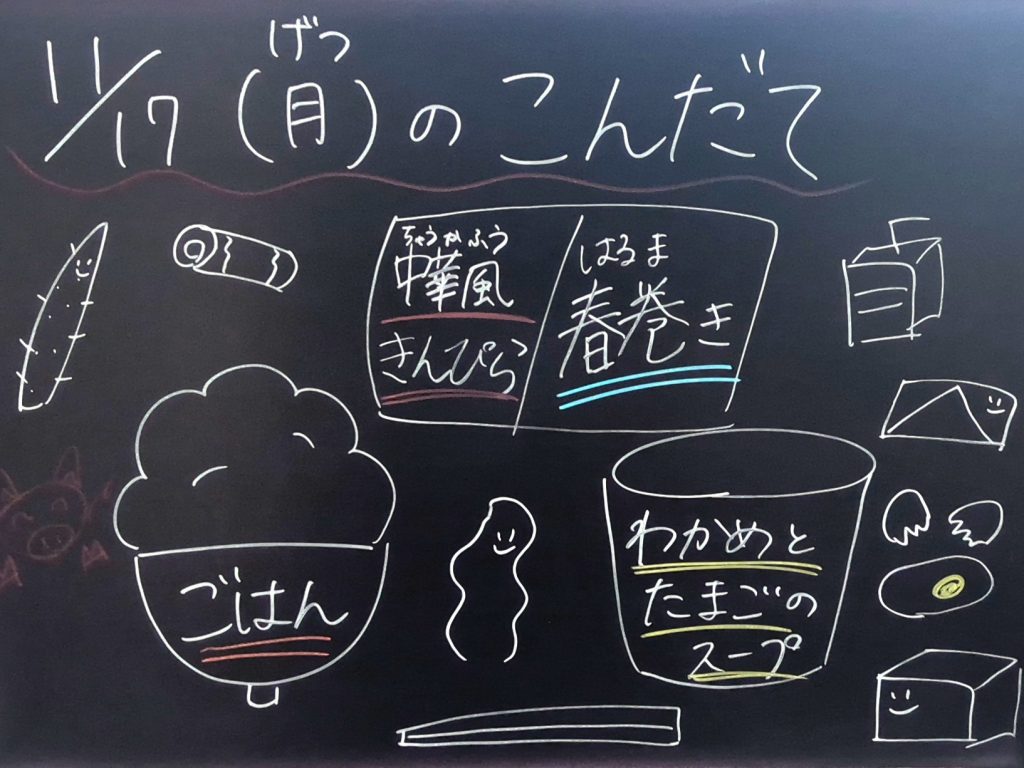 げつ
11/17(月)のこんだて
ちゅうかふう
中華風
きんぴら
はるま
春巻き
ごはん
わかめと
たまごの
スープ